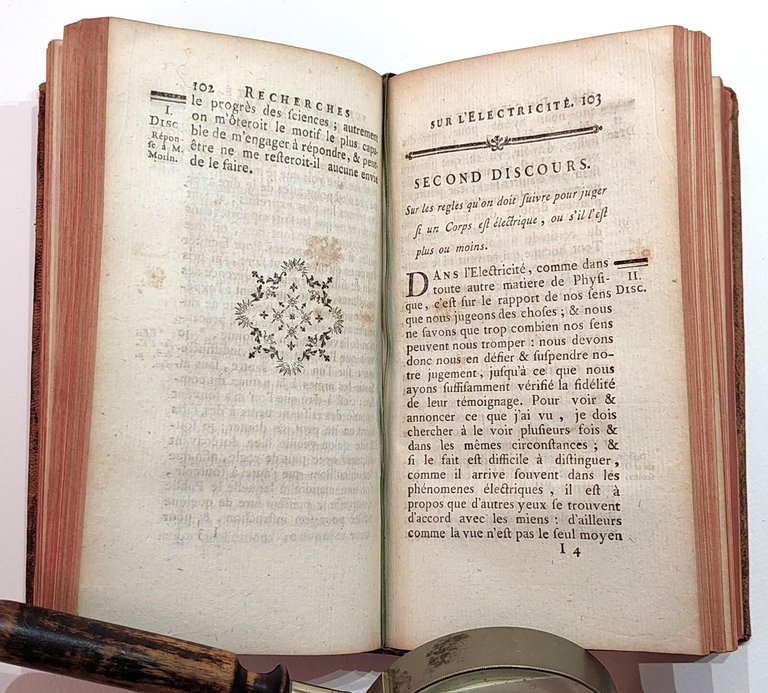 102 RECHERCHES
I.
DISC.
Répon-
se à M.
Morin.
le progrès des ſciences ; autrement
on m'ôteroit le motif le plus capa-
ble de m'engager à répondre, & peut-
être ne me reſteroit-il aucune envie
de le faire.
SUR L'ELECTRICITÉ. 103
SECOND DISCOURS.
Sur les regles qu'on doit ſuivre pour juger
ſi un Corps eſt électrique, ou s'il l'eſt
plus ou moins.
II.
DISC.
DANS l'Electricité, comme dans
toute autre matiere de Phyſi-
que, c'eſt ſur le rapport de nos ſens
que nous jugeons des choſes ; & nous
ne ſavons que trop combien nos ſens
peuvent nous tromper : nous devons
donc nous en défier & ſuſpendre no-
tre jugement, juſqu'à ce que nous
ayons ſuffiſamment vérifié la fidélité
de leur témoignage. Pour voir &
annoncer ce que j'ai vu, je dois
chercher à le voir pluſieurs fois &
dans les mêmes circonſtances ; &
ſi le fait eſt difficile à diſtinguer,
comme il arrive ſouvent dans les
phénomenes électriques, il eſt à
propos que d'autres yeux ſe trouvent
d'accord avec les miens : d'ailleurs
comme la vue n'eſt pas le ſeul moyen
I 4